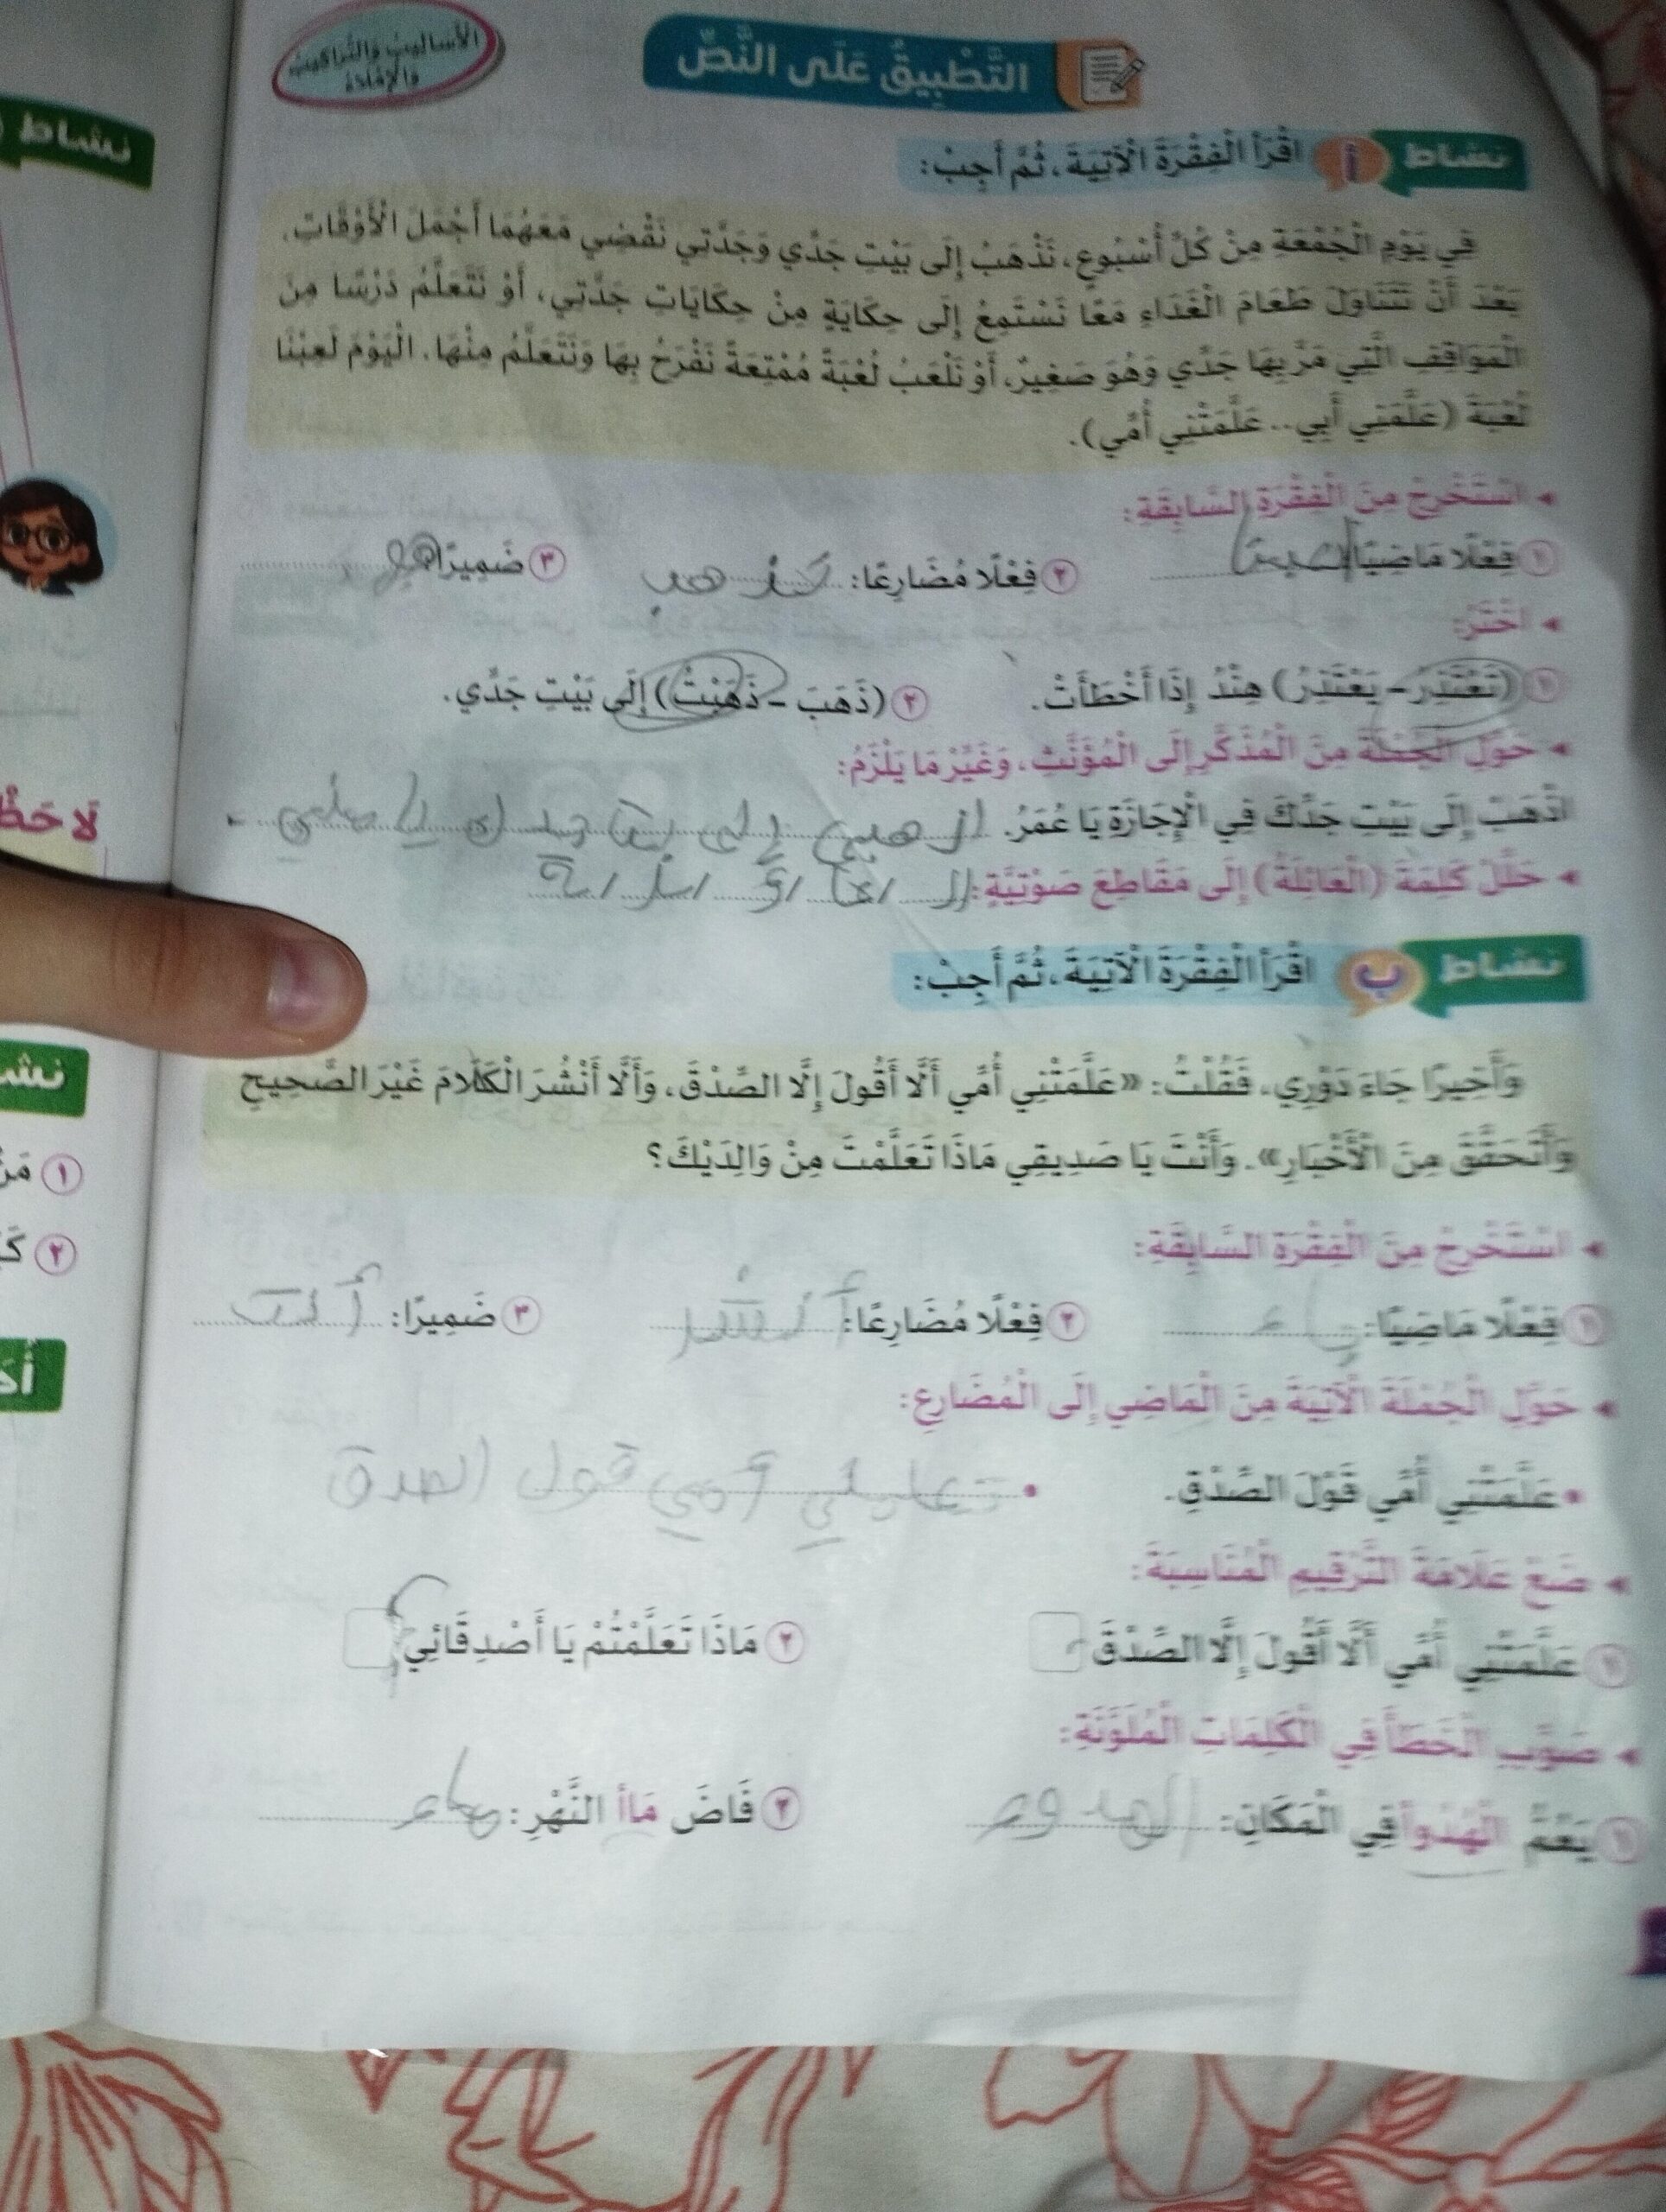 الأساليب والتراكيب
والإملاء
التَّطْبِيقُ عَلَى النَّصِّ
نشاط أ اقْرَأِ الْفِقْرَةَ الْآتِيَةَ، ثُمَّ أَجِبْ:
فِي يَوْمِ الْجُمْعَةِ مِنْ كُلِّ أُسْبُوعٍ، نَذْهَبُ إِلَى بَيْتِ جَدِّي وَجَدَّتِي نَقْضِي مَعَهُمَا أَجْمَلَ الْأَوْقَاتِ.
بَعْدَ أَنْ نَتَنَاوَلَ طَعَامَ الْغَدَاءِ مَعًا نَسْتَمِعُ إِلَى حِكَايَةٍ مِنْ حِكَايَاتِ جَدَّتِي، أَوْ نَتَعَلَّمُ دَرْسًا مِنَ
الْمَوَاقِفِ الَّتِي مَرَّ بِهَا جَدِّي وَهُوَ صَغِيرٌ، أَوْ نَلْعَبُ لُعْبَةً مُمْتِعَةً نَفْرَحُ بِهَا وَنَتَعَلَّمُ مِنْهَا. الْيَوْمَ لَعِبْنَا
لُعْبَةَ (عَلَّمَنِي أَبِي.. عَلَّمَتْنِي أُمِّي).
◂ اسْتَخْرِجْ مِنَ الْفِقْرَةِ السَّابِقَةِ:
١ فِعْلًا مَاضِيًا لعبنا ٢ فِعْلًا مُضَارِعًا: نذهب ٣ ضَمِيرًا
◂ اخْتَرْ:
١ (تَعْتَذِرُ - يَعْتَذِرُ) هِنْدُ إِذَا أَخْطَأَتْ. ٢ (ذَهَبَ - ذَهَبْتُ) إِلَى بَيْتِ جَدِّي.
◂ حَوِّلِ الْجُمْلَةَ مِنَ الْمُذَكَّرِ إِلَى الْمُؤَنَّثِ، وَغَيِّرْ مَا يَلْزَمُ:
اذْهَبْ إِلَى بَيْتِ جَدِّكَ فِي الْإِجَازَةِ يَا عُمَرُ. اذهبي إلى بيت جدك يا
◂ حَلِّلْ كَلِمَةَ (الْعَائِلَةُ) إِلَى مَقَاطِعَ صَوْتِيَّةٍ:
نشاط ب اقْرَأِ الْفِقْرَةَ الْآتِيَةَ، ثُمَّ أَجِبْ:
وَأَخِيرًا جَاءَ دَوْرِي، فَقُلْتُ: «عَلَّمَتْنِي أُمِّي أَلَّا أَقُولَ إِلَّا الصِّدْقَ، وَأَلَّا أَنْشُرَ الْكَلَامَ غَيْرَ الصَّحِيحِ
وَأَتَحَقَّقَ مِنَ الْأَخْبَارِ». وَأَنْتَ يَا صَدِيقِي مَاذَا تَعَلَّمْتَ مِنْ وَالِدَيْكَ؟
◂ اسْتَخْرِجْ مِنَ الْفِقْرَةِ السَّابِقَةِ:
١ فِعْلًا مَاضِيًا: جاء ٢ فِعْلًا مُضَارِعًا: أنشر ٣ ضَمِيرًا: أنت
◂ حَوِّلِ الْجُمْلَةَ الْآتِيَةَ مِنَ الْمَاضِي إِلَى الْمُضَارِعِ:
• عَلَّمَتْنِي أُمِّي قَوْلَ الصِّدْقِ. • أمي قول الصدق
◂ ضَعْ عَلَامَةَ التَّرْقِيمِ الْمُنَاسِبَةَ:
١ عَلَّمَتْنِي أُمِّي أَلَّا أَقُولَ إِلَّا الصِّدْقَ ٢ مَاذَا تَعَلَّمْتُمْ يَا أَصْدِقَائِي ؟
◂ صَوِّبِ الْخَطَأَ فِي الْكَلِمَاتِ الْمُلَوَّنَةِ:
١ يَعُمُّ الْهُدُوأ فِي الْمَكَانِ: الهدوء ٢ فَاضَ مَاأ النَّهْرِ: ماء
نشاط
لَاحَظْ
١ مَنْ
٢